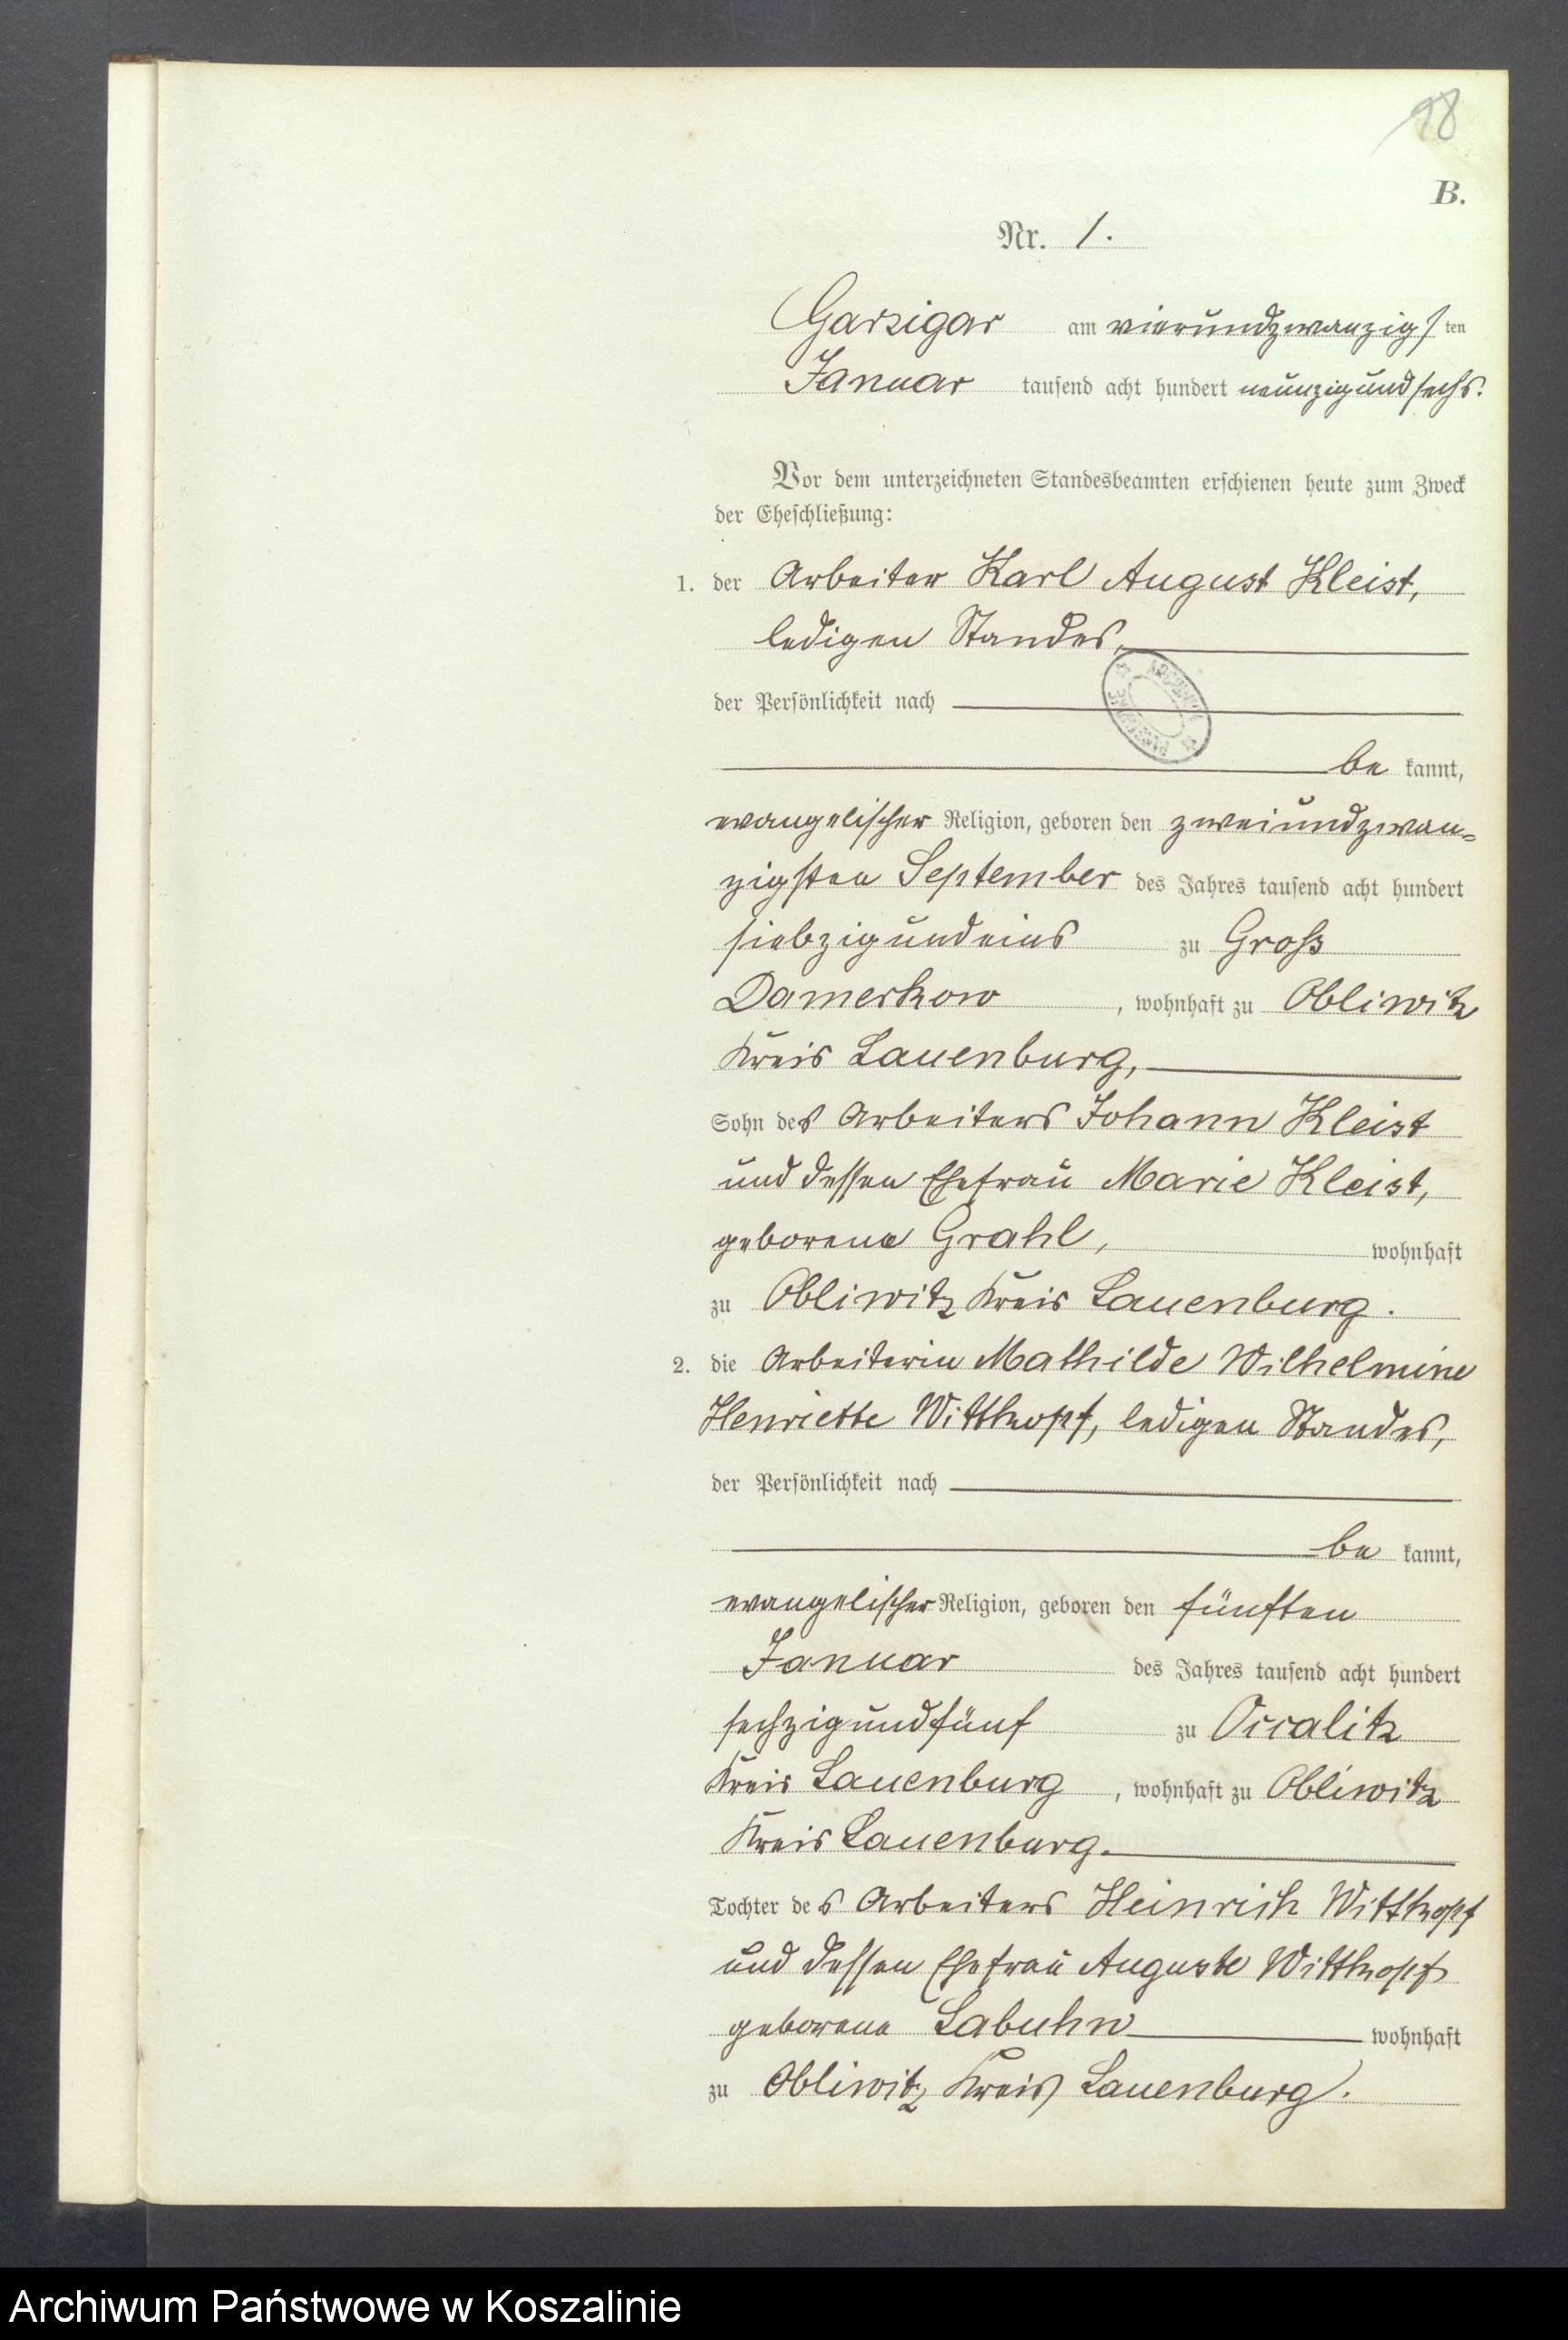 18
B.
Nr. 1.
Garzigar am vierundzwanzigsten
Januar tausend acht hundert neunzigundsechs.
Vor dem unterzeichneten Standesbeamten erschienen heute zum Zweck
der Eheschließung:
1. der Arbeiter Karl August Kleist,
ledigen Standes,
der Persönlichkeit nach
be kannt,
evangelischer Religion, geboren den zweiundzwan=
zigsten September des Jahres tausend acht hundert
siebzigundeins zu Groß
Damerkow, wohnhaft zu Obliwitz
Kreis Lauenburg,
Sohn des Arbeiters Johann Kleist
und dessen Ehefrau Marie Kleist,
geborene Grahl, wohnhaft
zu Obliwitz Kreis Lauenburg.
2. die Arbeiterin Mathilde Wilhelmine
Henriette Witthopf, ledigen Standes,
der Persönlichkeit nach
be kannt,
evangelischer Religion, geboren den fünften
Januar des Jahres tausend acht hundert
sechzigundfünf zu Occalitz
Kreis Lauenburg, wohnhaft zu Obliwitz
Kreis Lauenburg.
Tochter des Arbeiters Heinrich Witthopf
und dessen Ehefrau Auguste Witthopf
geborene Labuhn wohnhaft
zu Obliwitz Kreis Lauenburg.
Archiwum Państwowe w Koszalinie